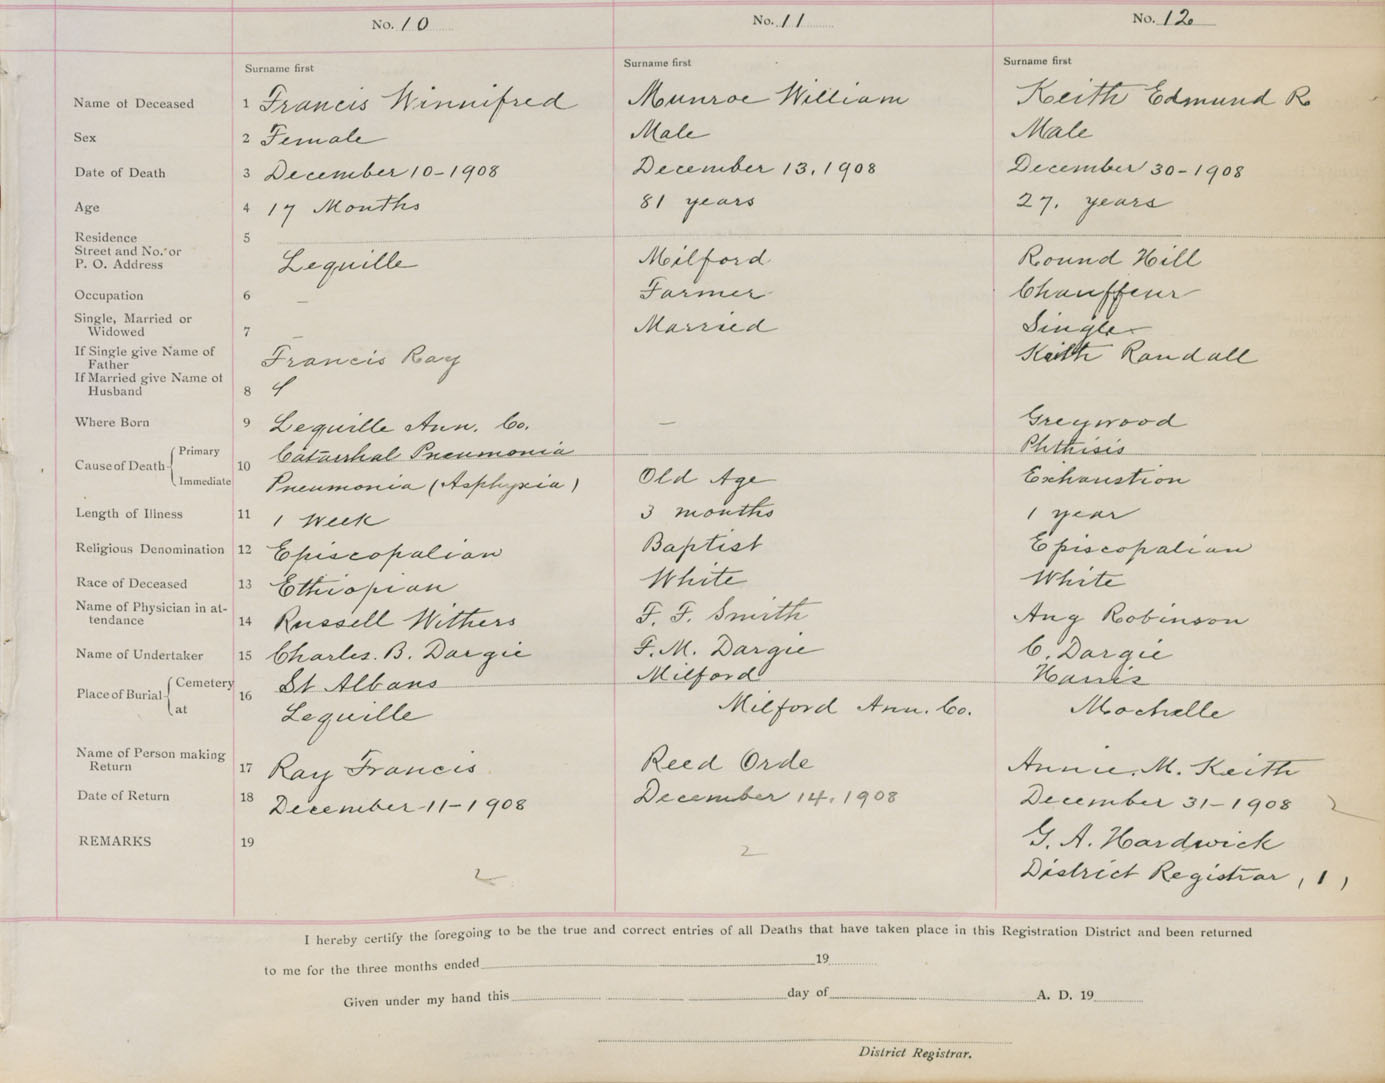 No. 10 No. 11 No. 12
Surname first Surname first Surname first
Name of Deceased 1 Francis Winnifred Munroe William Keith Edmund R
Sex 2 Female Male Male
Date of Death 3 December 10-1908 December 13, 1908 December 30-1908
Age 4 17 Months 81 years 27. years
Residence 5
Street and No. or
P. O. Address Lequille Milford Round Hill
Occupation 6 — Farmer Chauffeur
Single, Married or
Widowed 7 — Married Single
If Single give Name of
Father Francis Ray Keith Randall
If Married give Name of
Husband 8
Where Born 9 Lequille Ann. Co. — Greywood
Cause of Death Primary Catarrhal Pneumonia Phthisis
10 Immediate Pneumonia (Asphyxia) Old Age Exhaustion
Length of Illness 11 1 Week 3 months 1 year
Religious Denomination 12 Episcopalian Baptist Episcopalian
Race of Deceased 13 Ethiopian White White
Name of Physician in at-
tendance 14 Russell Withers F. F. Smith Aug Robinson
Name of Undertaker 15 Charles. B. Dargie F. M. Dargie C. Dargie
Place of Burial Cemetery St Albans Milford Harris
16 at Lequille Milford Ann. Co. Mochelle
Name of Person making
Return 17 Ray Francis Reed Orde Annie. M. Keith
Date of Return 18 December-11-1908 December 14, 1908 December 31-1908 2
REMARKS 19 G. A. Hardwick
2 2 District Registrar, 1,
I hereby certify the foregoing to be the true and correct entries of all Deaths that have taken place in this Registration District and been returned
to me for the three months ended 19
Given under my hand this day of A. D. 19
District Registrar.